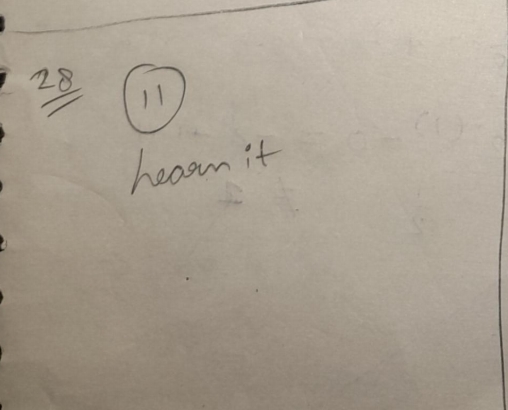 28 11
Learn it